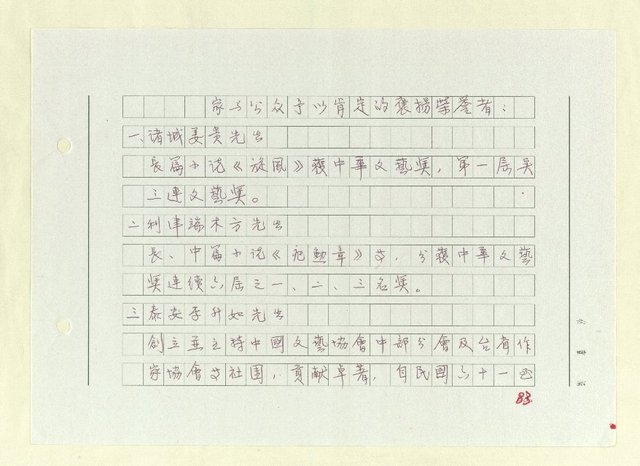 家与公众予以肯定的褒揚荣誉者：
一、诸城姜贵先生
長篇小说《旋風》獲中華文藝奖，第一屆吴
三連文藝奖。
二利津端木方先生
長、中篇小说《疤勳章》等，分獲中華文藝
奖連續六屆之一、二、三名奖。
三泰安李升如先生
創立並主持中國文藝協會中部分會及台省作
家協會等社团，貢献卓著，自民國六十一
83.